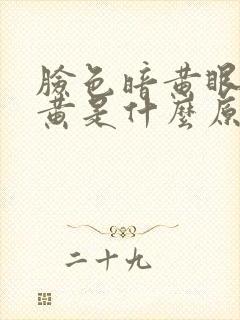 臉色暗黃眼
黃是什麼原
二十九